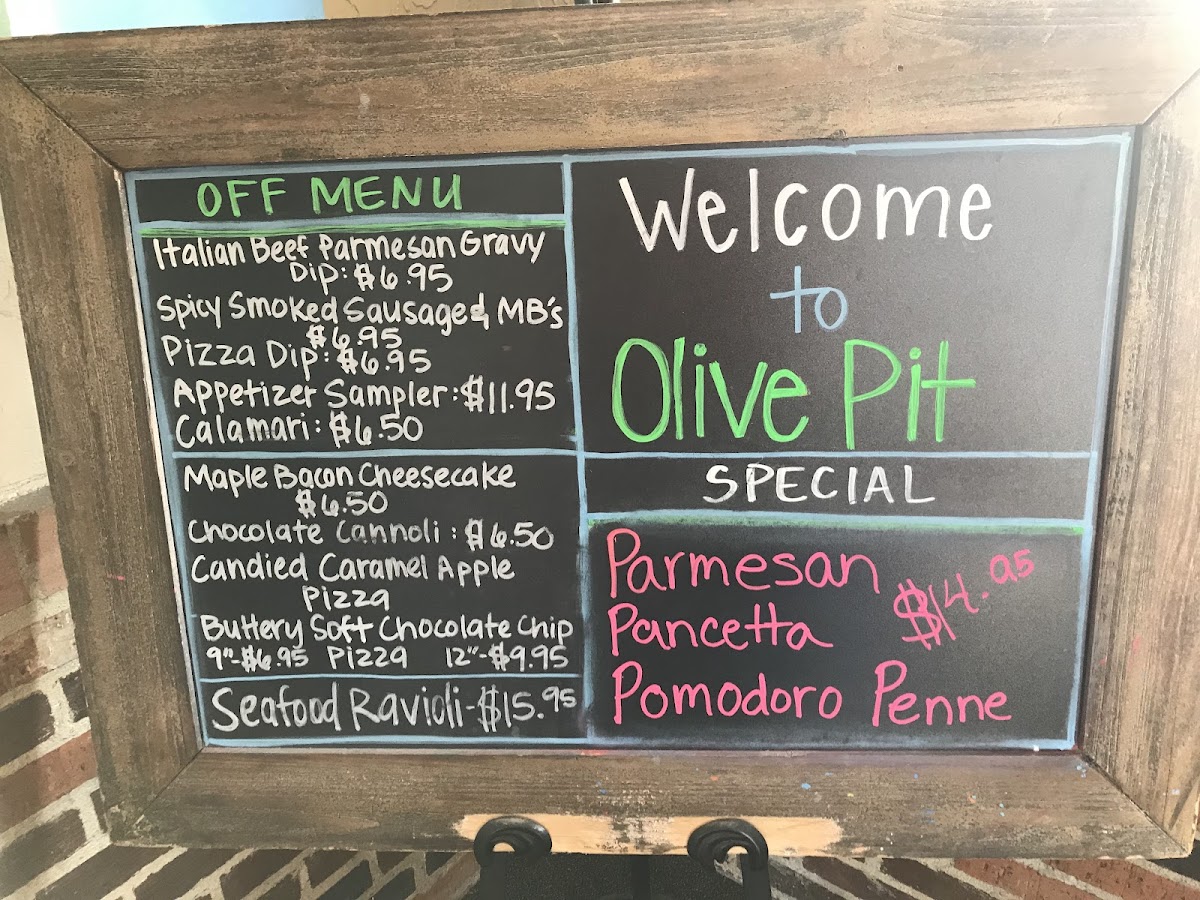 OFF MENU
Italian Beef Parmesan Gravy
Dip: $6.95
Spicy Smoked Sausage & MB's
$6.95
Pizza Dip: $6.95
Appetizer Sampler: $11.95
Calamari: $6.50
Maple Bacon Cheesecake
$6.50
Chocolate Cannoli: $6.50
Candied Caramel Apple
Pizza
Buttery Soft Chocolate Chip
9"-$6.95 Pizza 12"-$9.95
Seafood Ravioli-$15.95
Welcome
to
Olive Pit
SPECIAL
Parmesan
Pancetta $14.95
Pomodoro Penne